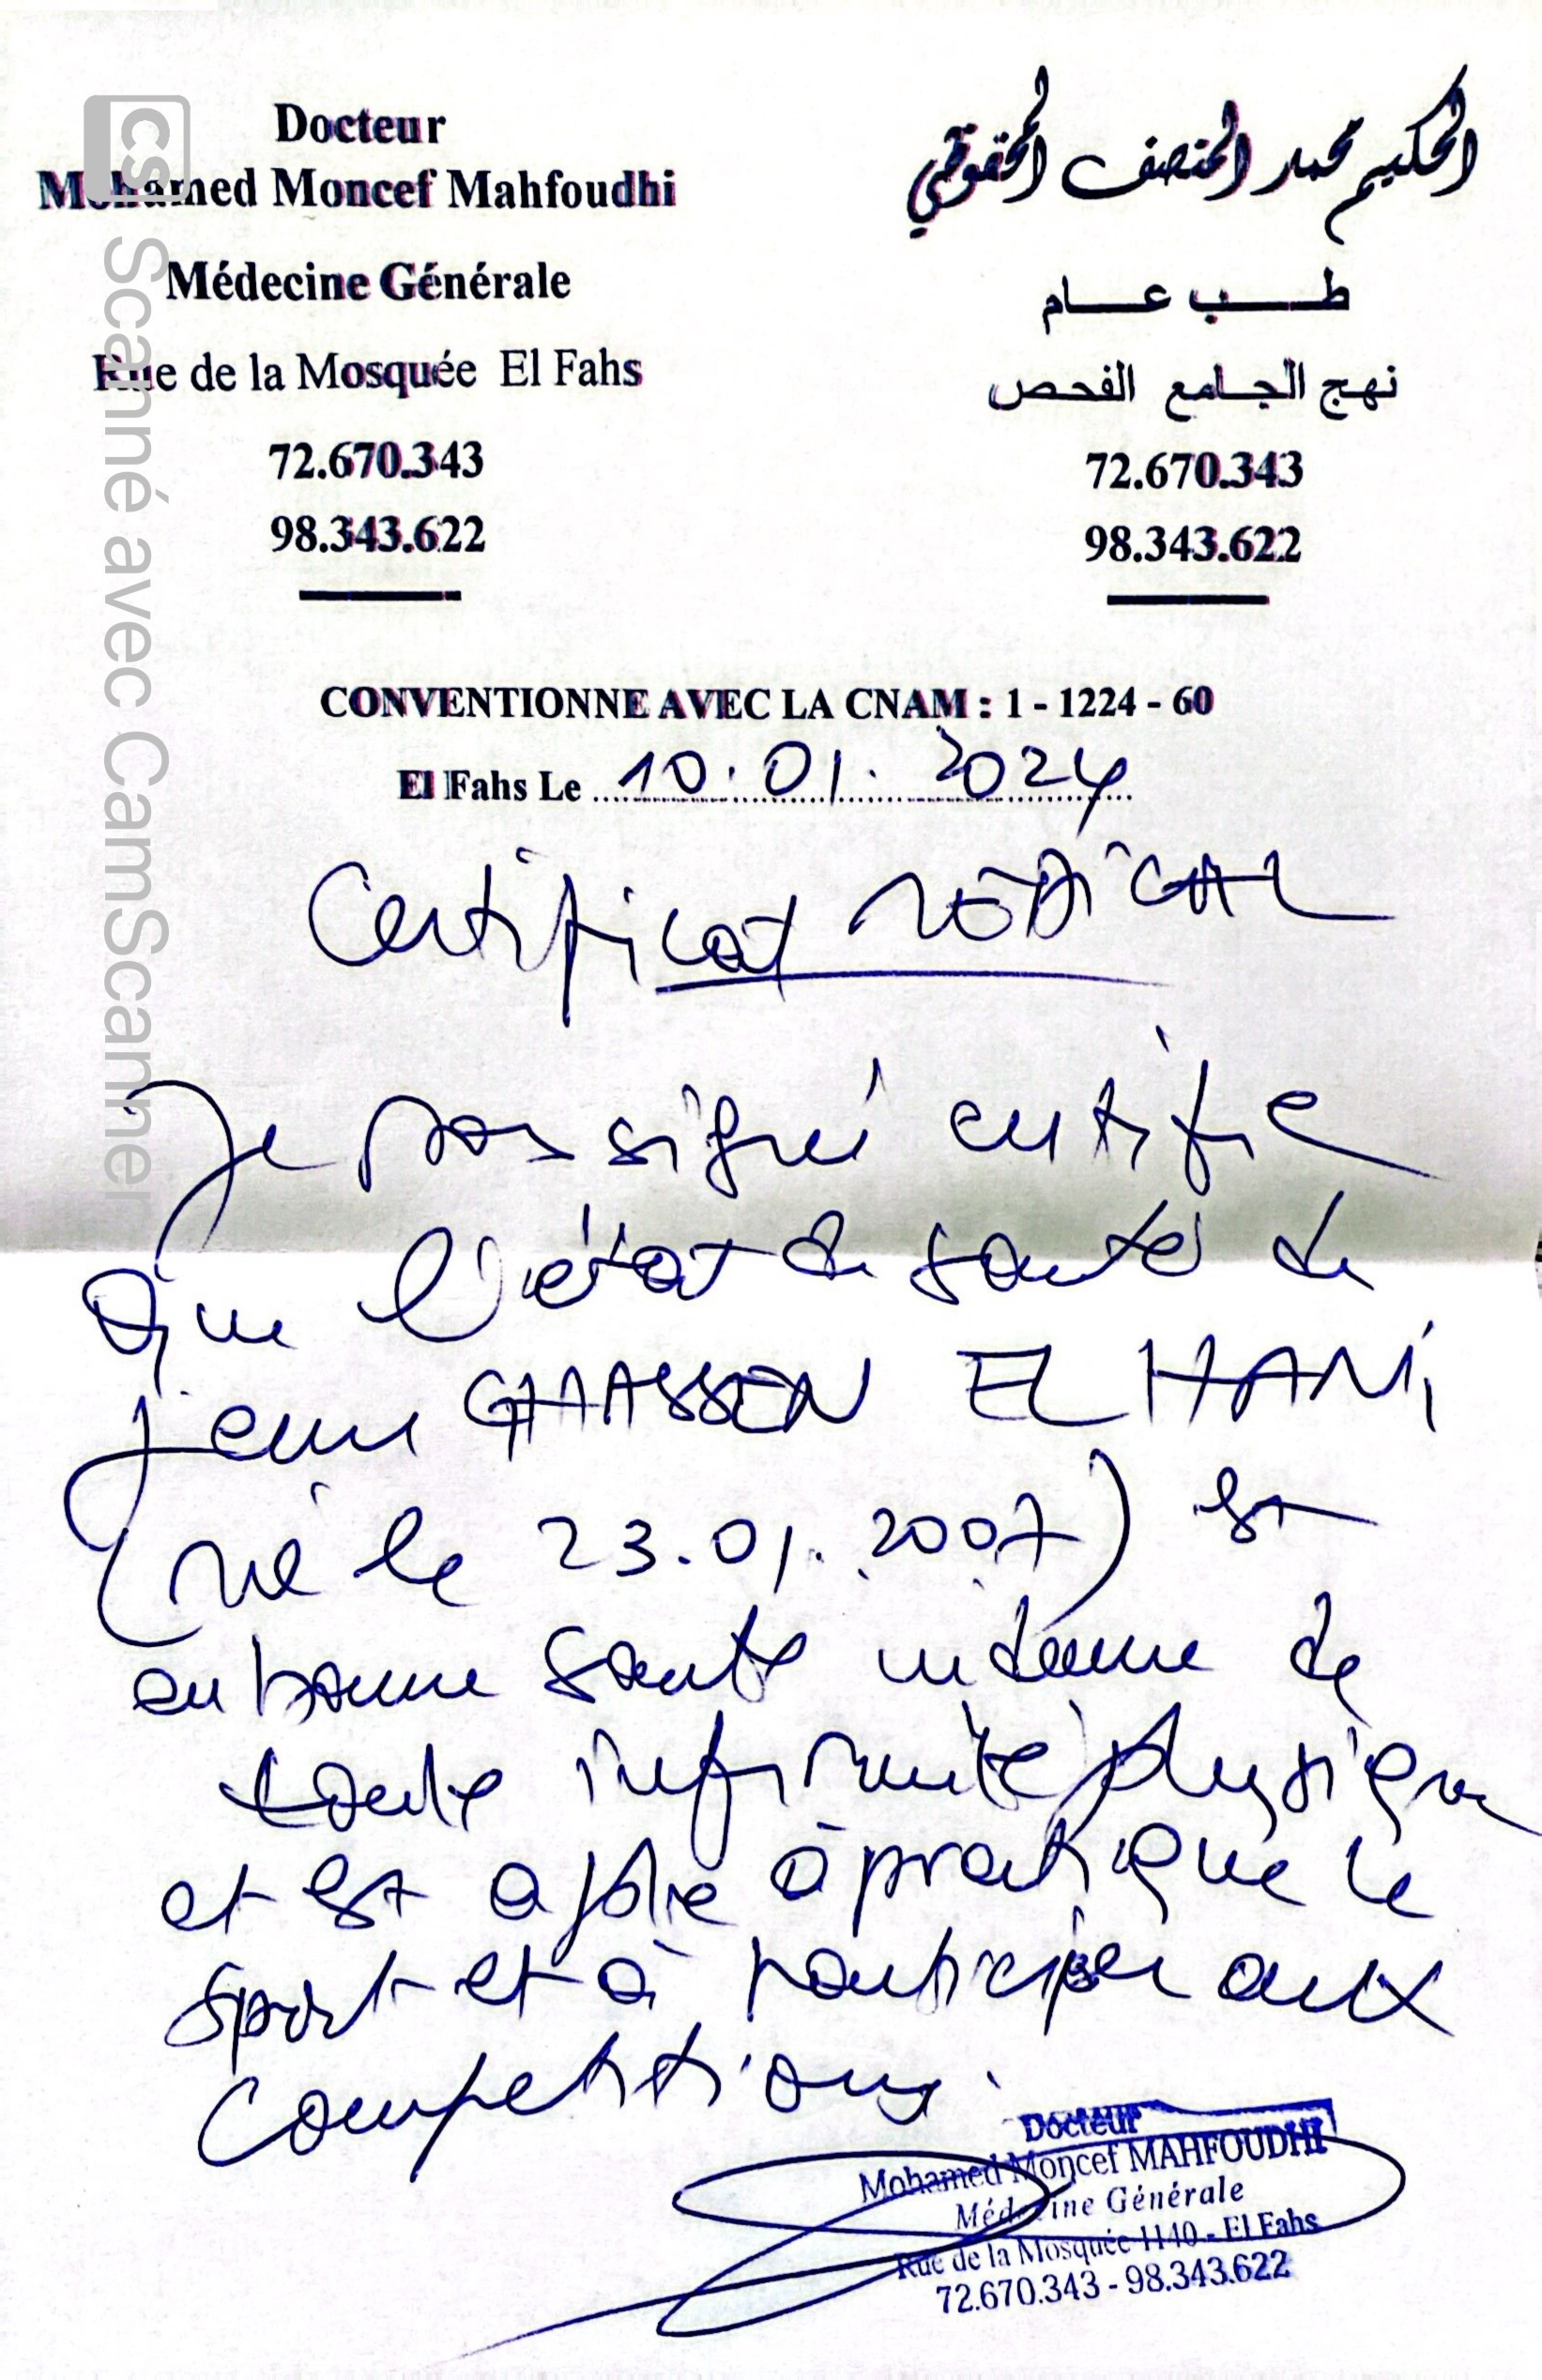 Docteur
Mohamed Moncef Mahfoudhi
Médecine Générale
Rue de la Mosquée El Fahs
72.670.343
98.343.622
الحكيم محمد المنصف المحفوظي
طب عام
نهج الجامع الفحص
72.670.343
98.343.622
CONVENTIONNE AVEC LA CNAM : 1 - 1224 - 60
El Fahs Le 10.01.2024
Certificat MÉDICAL
Je soussigné certifie
que l'état de santé de
jeune GHASSEN EL HANI
(né le 23.01.2007) est
en bonne santé indemne de
toute infirmité physique
et est apte à pratiquer le
sport et à participer aux
compétitions.
Docteur
Mohamed Moncef MAHFOUDHI
Médecine Générale
Rue de la Mosquée 1140 - El Fahs
72.670.343 - 98.343.622
CS Scanné avec CamScanner